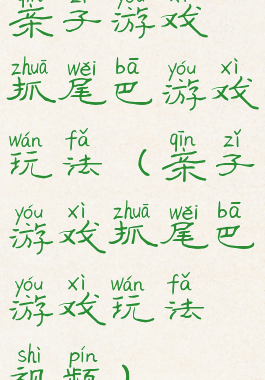 qīn zǐ yóu xì
亲子游戏
zhuā wěi bā yóu xì
抓尾巴游戏
wán fǎ qīn zǐ
玩法（亲子
yóu xì zhuā wěi bā
游戏抓尾巴
yóu xì wán fǎ
游戏玩法
shì pín
视频）